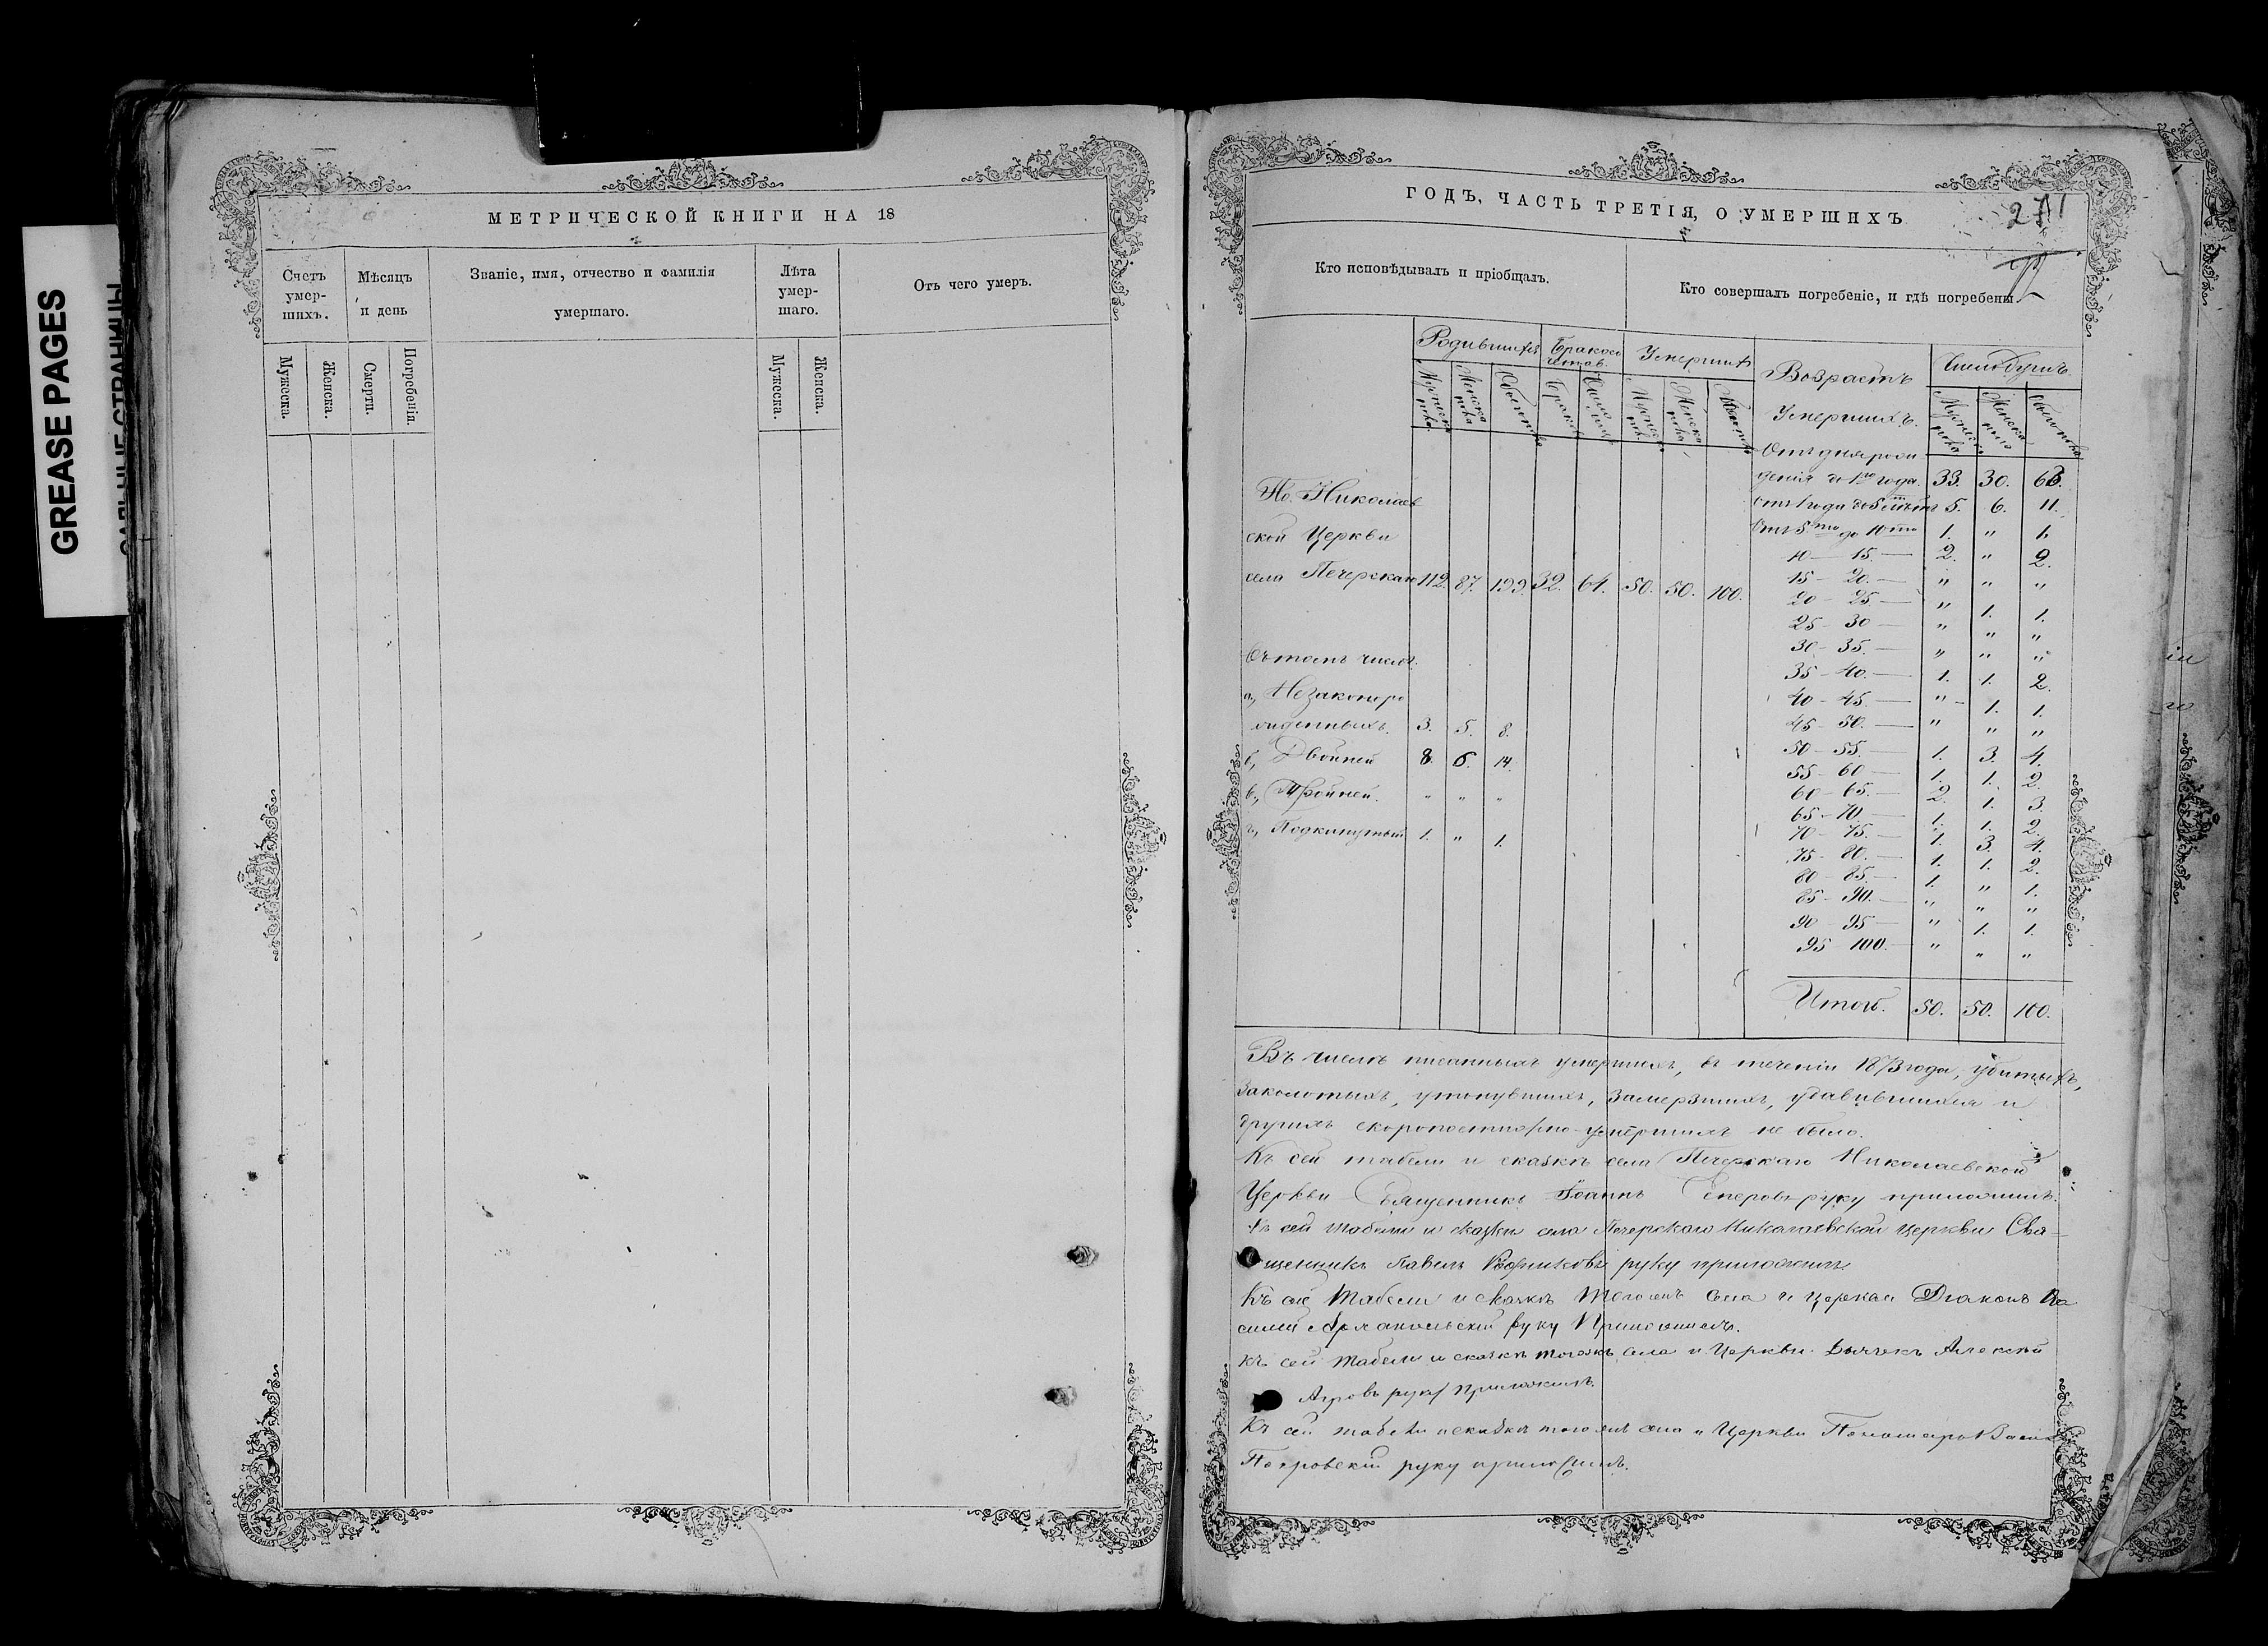 GREASE PAGES
САЛЬНЫЕ СТРАНИЦЫ
МЕТРИЧЕСКОЙ КНИГИ НА 18
Счетъ умер-шихъ.
Мѣсяцъ и день
Званіе, имя, отчество и фамилія умершаго.
Лѣта умер-шаго.
Отъ чего умеръ.
Мужска.
Женска.
Смерти.
Погребенія.
Мужска.
Женска.
ГОДЪ, ЧАСТЬ ТРЕТІЯ, О УМЕРШИХЪ
271
Кто исповѣдывалъ и пріобщалъ.
Кто совершалъ погребеніе, и гдѣ погребены.
Родившихся
Умершихъ
Возрастъ
Умершихъ.
Число душъ.
По Николаев
ской Церкви
села Печерскаго 112. 87. 199. 32. 64. 50. 50. 100.
Въ томъ числѣ.
а, Незаконоро
жденныхъ. 3. 5. 8.
б, Двойней 8. 6. 14.
в, Тройней. " " "
г, Подкинутый 1. " 1.
Отъ дня рож
денія до 1го года. 33. 30. 63.
Отъ 1 года до 5 лѣтъ 5. 6. 11.
Отъ 5ти до 10ти 1. " 1.
10 — 15. — 2. " 2.
15 — 20. — " " "
20 — 25. — " 1. 1.
25 — 30 — " " "
30 — 35. — " " "
35 — 40. — 1. 1. 2.
40 — 45. — " 1. 1.
45 — 50. — " " "
50 — 55. — 1. 3. 4.
55 — 60 — 1. 1. 2.
60 — 65. — 2. 1. 3.
65 — 70. — 1. 1. 2.
70 — 75. — 1. 3. 4.
75 — 80. — 1. 1. 2.
80 — 85. — 1. " 1.
85 — 90. — " " "
90 — 95 — " 1. 1.
95 — 100. — " " "
Итого. 50. 50. 100.
Въ числѣ писанныхъ умершихъ, въ теченіи 1873 года, убитыхъ,
заколотыхъ, утонувшихъ, замерзшихъ, удавившихся и
другихъ скоропостижно-умершихъ не было.
Къ сей табели и сказкѣ села Печерскаго Николаевской
Церкви Священникъ Іоаннъ руку приложилъ.
Къ сей табели и сказки села Печерскаго Николаевской церкви Свя-
щенникъ Павелъ руку приложилъ
Къ сей табели и сказкѣ тогожъ села и церкви Діаконъ Ва
силій руку приложилъ.
Къ сей табели и сказкѣ тогожъ села и Церкви Дьячекъ Алексѣй
руку приложилъ.
Къ сей табели и сказкѣ тогожъ села и Церкви Пономарь
Покровскій руку приложилъ.